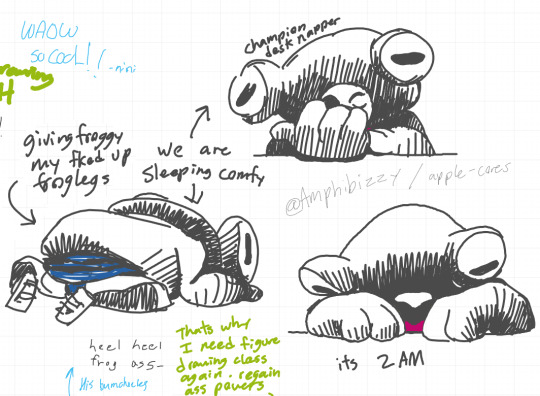 WAOW
so cool!!
-nini
H
champion
desk napper
giving froggy
my fked up
froglegs
we are
sleeping comfy
@Amphibizzy / apple-cores
heel heel
frog ass-
His bumcheeks
Thats why
I need figure
drawing class
again. regain
ass powers.
its 2 AM